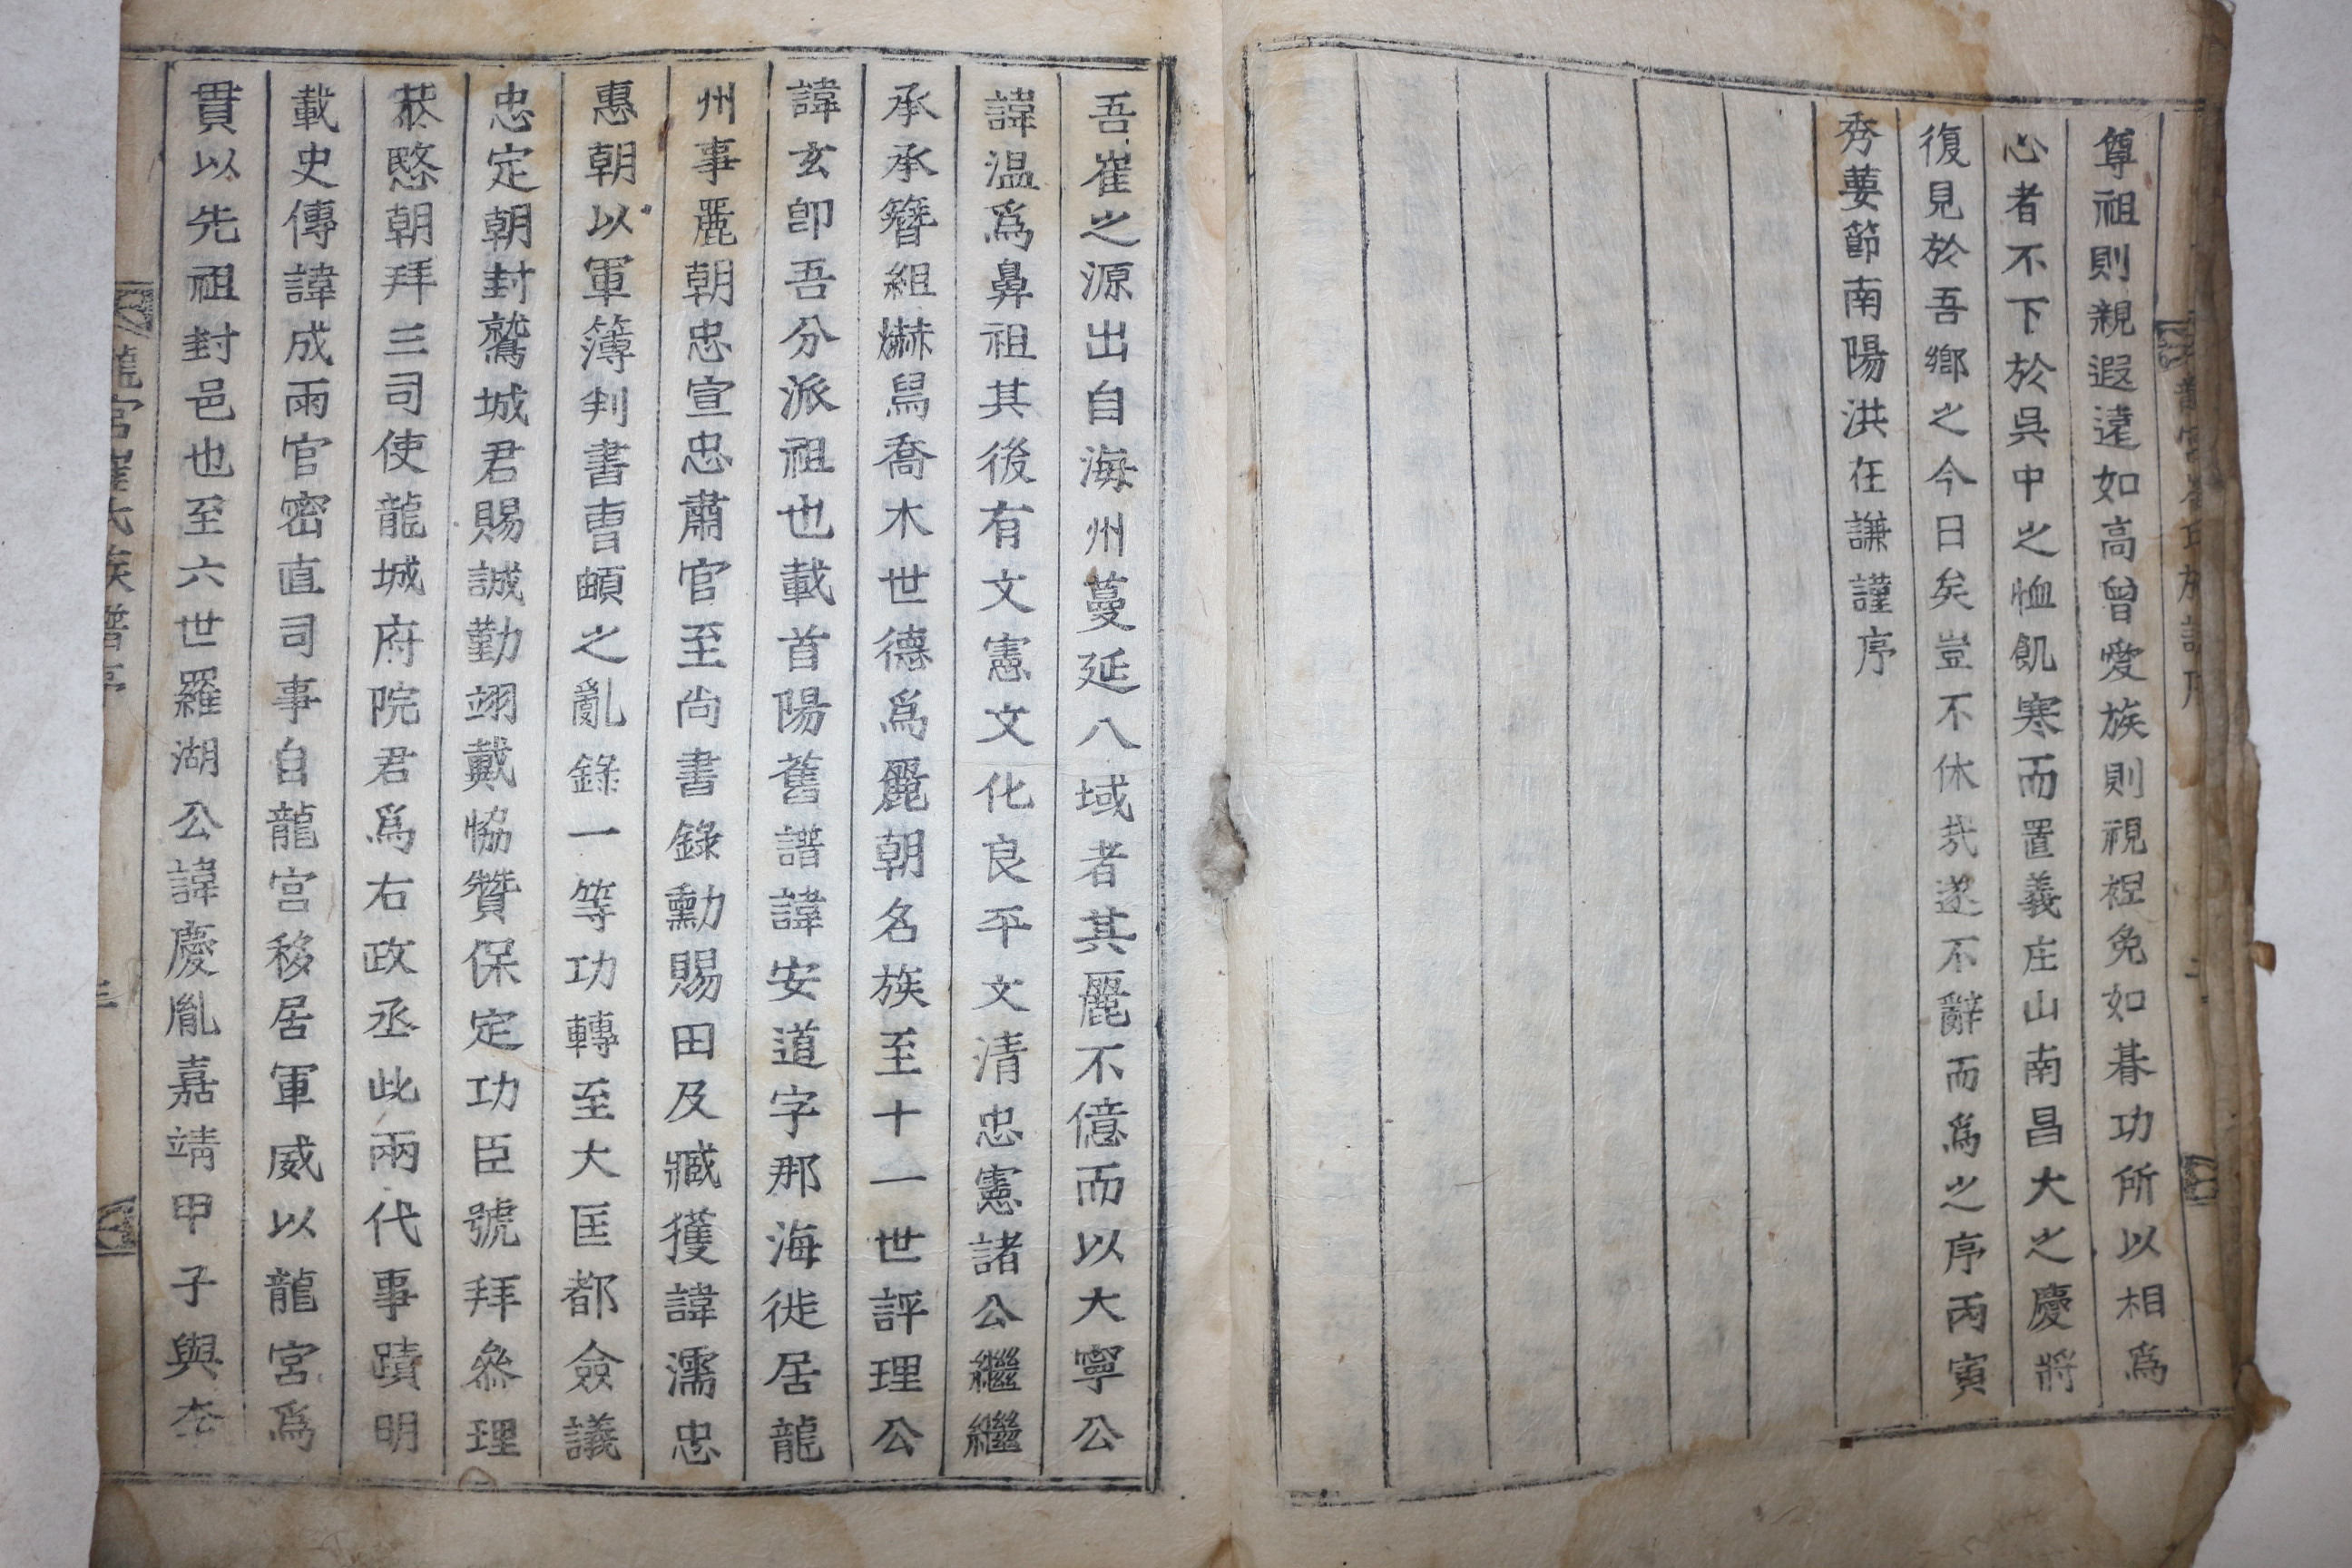 尊祖則親遐遠如高曾愛族則視袒免如朞功所以相爲
心者不下於吳中之恤飢寒而置義庄山南昌大之慶將
復見於吾鄉之今日矣豈不休㦲遂不辭而爲之序丙寅
秀葽節南陽洪在謙謹序
吾崔之源出自海州蔓延八域者其麗不億而以大寧公
諱温爲鼻祖其後有文憲文化良平文清忠憲諸公繼繼
承承簪組爀舃喬木世德爲麗朝名族至十一世評理公
諱玄卽吾分派祖也載首陽舊譜諱安道字那海徙居龍
州事麗朝忠宣忠肅官至尙書錄勳賜田及臧獲諱濡忠
惠朝以軍簿判書曺頔之亂錄一等功轉至大匡都僉議
忠定朝封鷲城君賜誠勤翊戴恊贊保定功臣號拜叅理
恭愍朝拜三司使龍城府院君爲右政丞此兩代事蹟明
載史傳諱成雨官密直司事自龍宮移居軍威以龍宮爲
貫以先祖封邑也至六世羅湖公諱慶胤嘉靖甲子與
龍宮崔氏族譜序
三